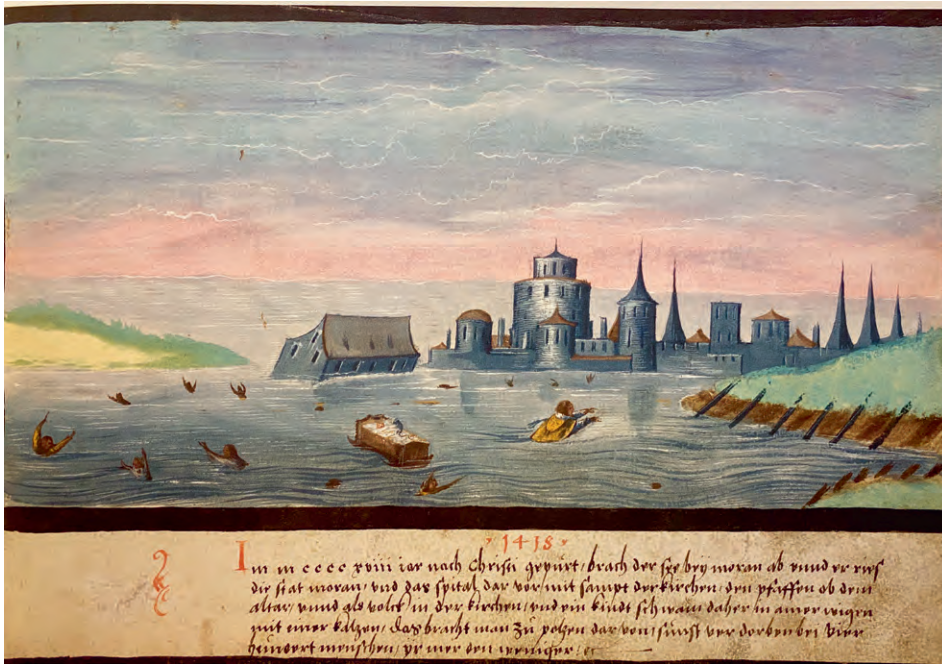 · 1418 ·
Im m cccc xviii iar nach Christi gepurt / brach der see bey moran ab vnnd er
die stat moran / vnd das spital dar vor / mit sampt der kirchen / den pfaffen ob dem
altar / vnnd als volck in der kirchen / vnd ein kindt schwam daher in ainer wigen
mit einer katzen / das bracht man zu potzen dar von / sunst ver dorben bei vier
hundert menschen / mer den weniger